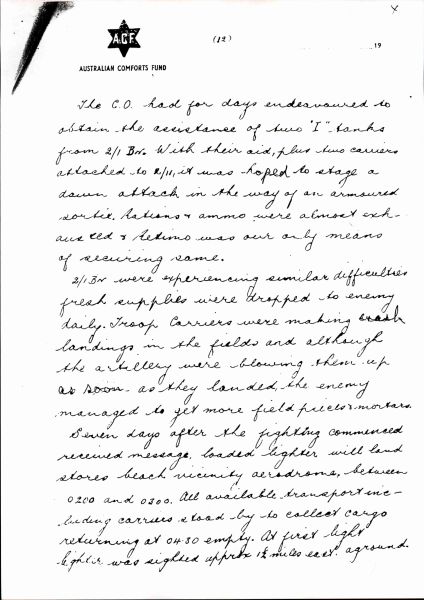 x
A.C.F.
(12)
19
AUSTRALIAN COMFORTS FUND
The C.O. had for days endeavoured to
obtain the assistance of two "I" tanks
from 2/1 Bn. With their aid, plus two carriers
attached to 2/11, it was hoped to stage a
dawn attack in the way of an armoured
sortie. Rations & ammo were almost exh-
austed & Retimo was our only means
of securing same.
2/1 Bn were experiencing similar difficulties
fresh supplies were dropped to enemy
daily. Troop Carriers were making crash
landings in the fields and although
the artillery were blowing them up
as soon as they landed, the enemy
managed to get more field pieces & mortars.
Seven days after the fighting commenced
received message, loaded lighter will land
stores beach vicinity aerodrome, between
0200 and 0300. All available transport inc-
luding carriers stood by to collect cargo
returning at 0430 empty. At first light
lighter was sighted approx 1½ miles east aground.